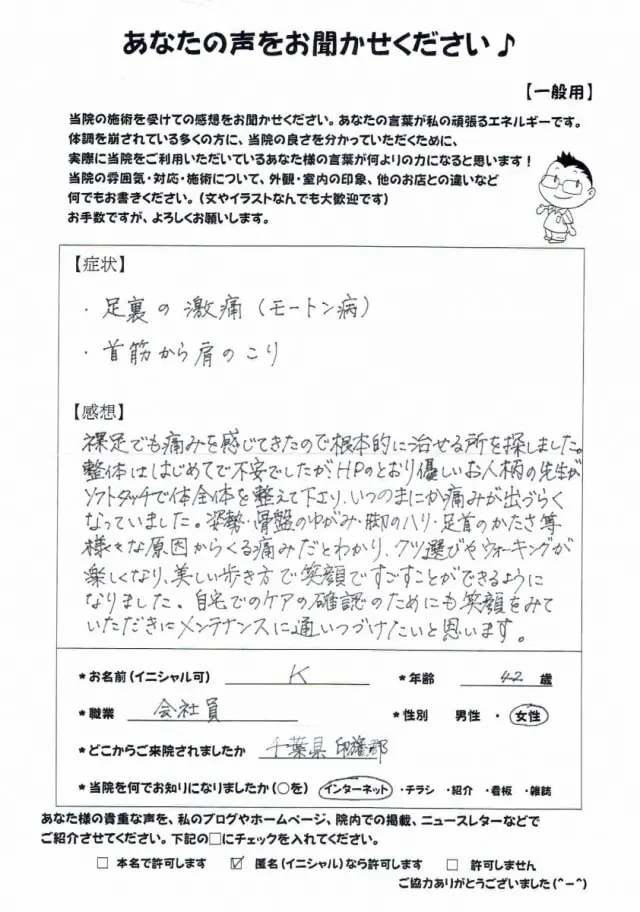 あなたの声をお聞かせください♪
【一般用】
当院の施術を受けての感想をお聞かせください。あなたの言葉が私の頑張るエネルギーです。
体調を崩されている多くの方に、当院の良さを分かっていただくために、
実際に当院をご利用いただいているあなた様の言葉が何よりの力になると思います!
当院の雰囲気・対応・施術について、外観・室内の印象、他のお店との違いなど
何でもお書きください。(文やイラストなんでも大歓迎です)
お手数ですが、よろしくお願いします。
【症状】
・足裏の激痛(モートン病)
・首筋から肩のこり
【感想】
裸足でも痛みを感じてきたので根本的に治せる所を探しました。
整体ははじめてで不安でしたが、HPのとおり優しいお人柄の先生が
ソフトタッチで体全体を整えて下さり、いつのまにか痛みが出づらく
なっていました。姿勢・骨盤のゆがみ・脚のハリ・足首のかたさ等
様々な原因からくる痛みだとわかり、クツ選びやウォーキングが
楽しくなり、美しい歩き方で笑顔ですごすことができるように
なりました。自宅でのケアの確認のためにも笑顔をみて
いただきにメンテナンスに通いつづけたいと思います。
*お名前(イニシャル可) K *年齢 42 歳
*職業 会社員 *性別 男性 ・ 女性
*どこからご来院されましたか 千葉県 印旛郡
*当院を何でお知りになりましたか(○を) インターネット ・チラシ ・紹介 ・看板 ・雑誌
あなた様の貴重な声を、私のブログやホームページ、院内での掲載、ニュースレターなどで
ご紹介させてください。下記の□にチェックを入れてください。
□ 本名で許可します ☑ 匿名(イニシャル)なら許可します □ 許可しません
ご協力ありがとうございました(^-^)